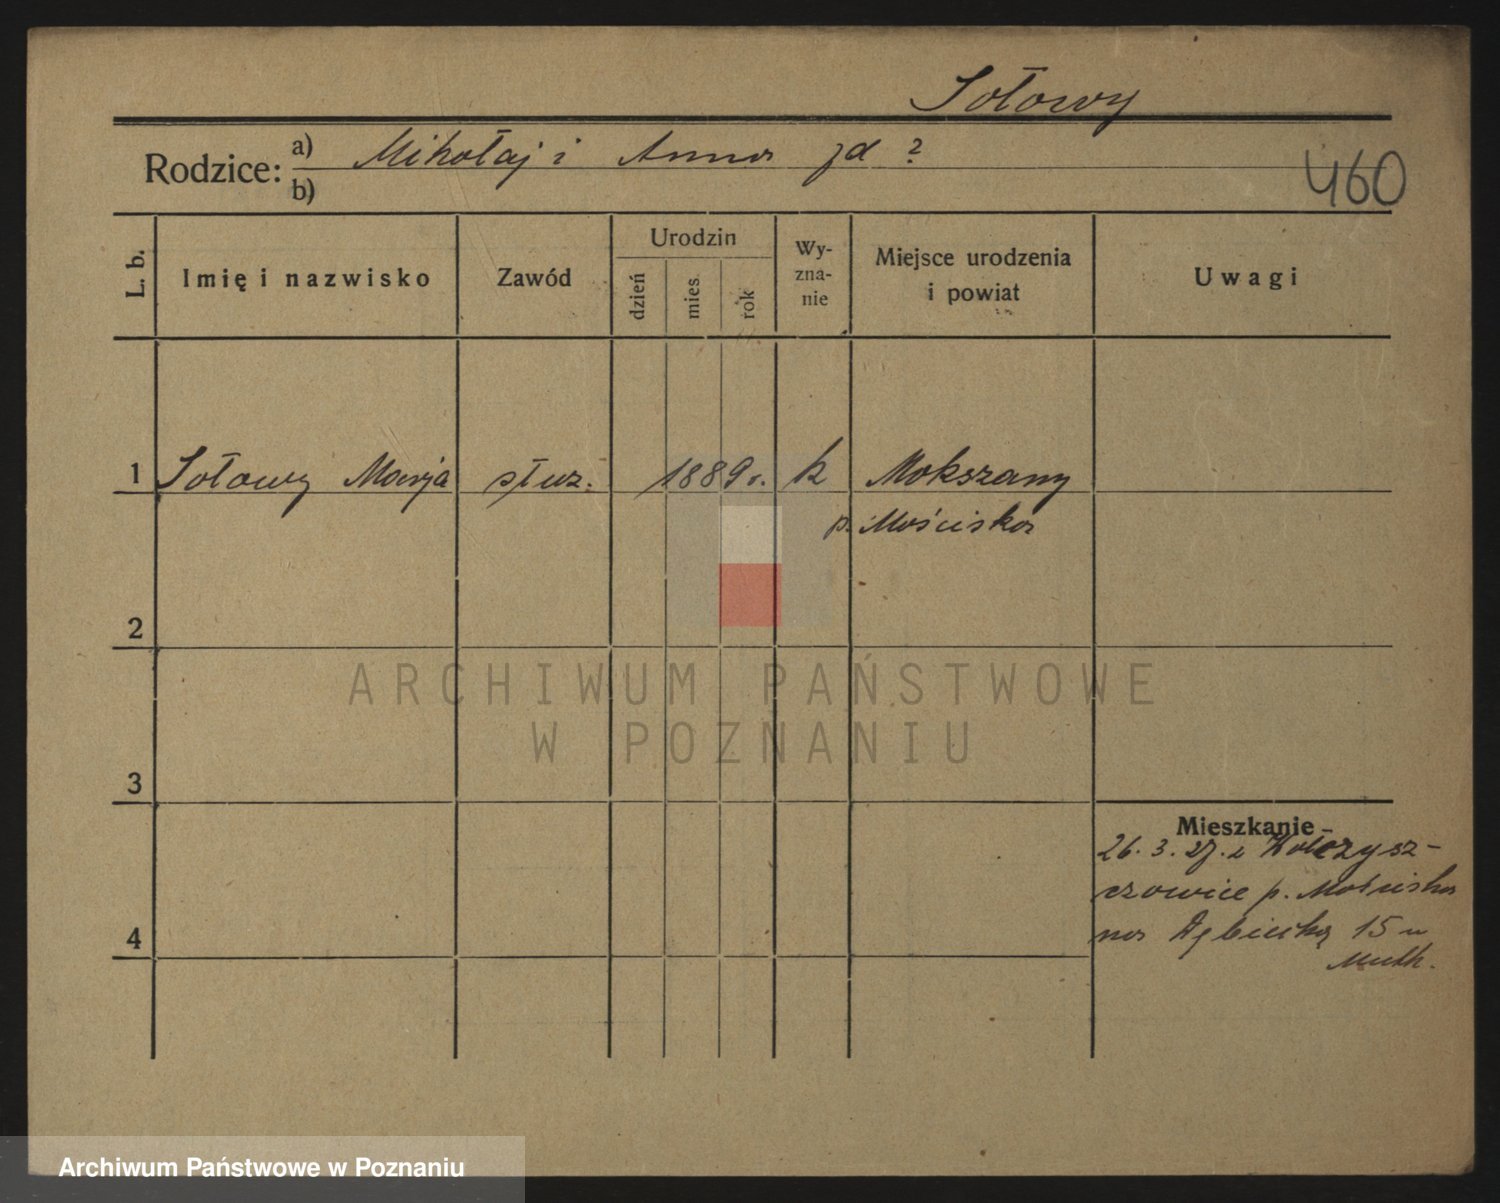 Sołowy
Rodzice: a) Mikołaj i Anna zd ?
b)
460
L. b.
Imię i nazwisko
Zawód
Urodzin
dzień
mies.
rok
Wy-
zna-
nie
Miejsce urodzenia
i powiat
Uwagi
1 Sołowy Marja służ. 1889 r. k Mokszany
p. Mościska
2
ARCHIWUM PAŃSTWOWE
W POZNANIU
3
Mieszkanie
26. 3. 27. z
czowice p. Mościska
na Dębiecką 15 u
4
Archiwum Państwowe w Poznaniu